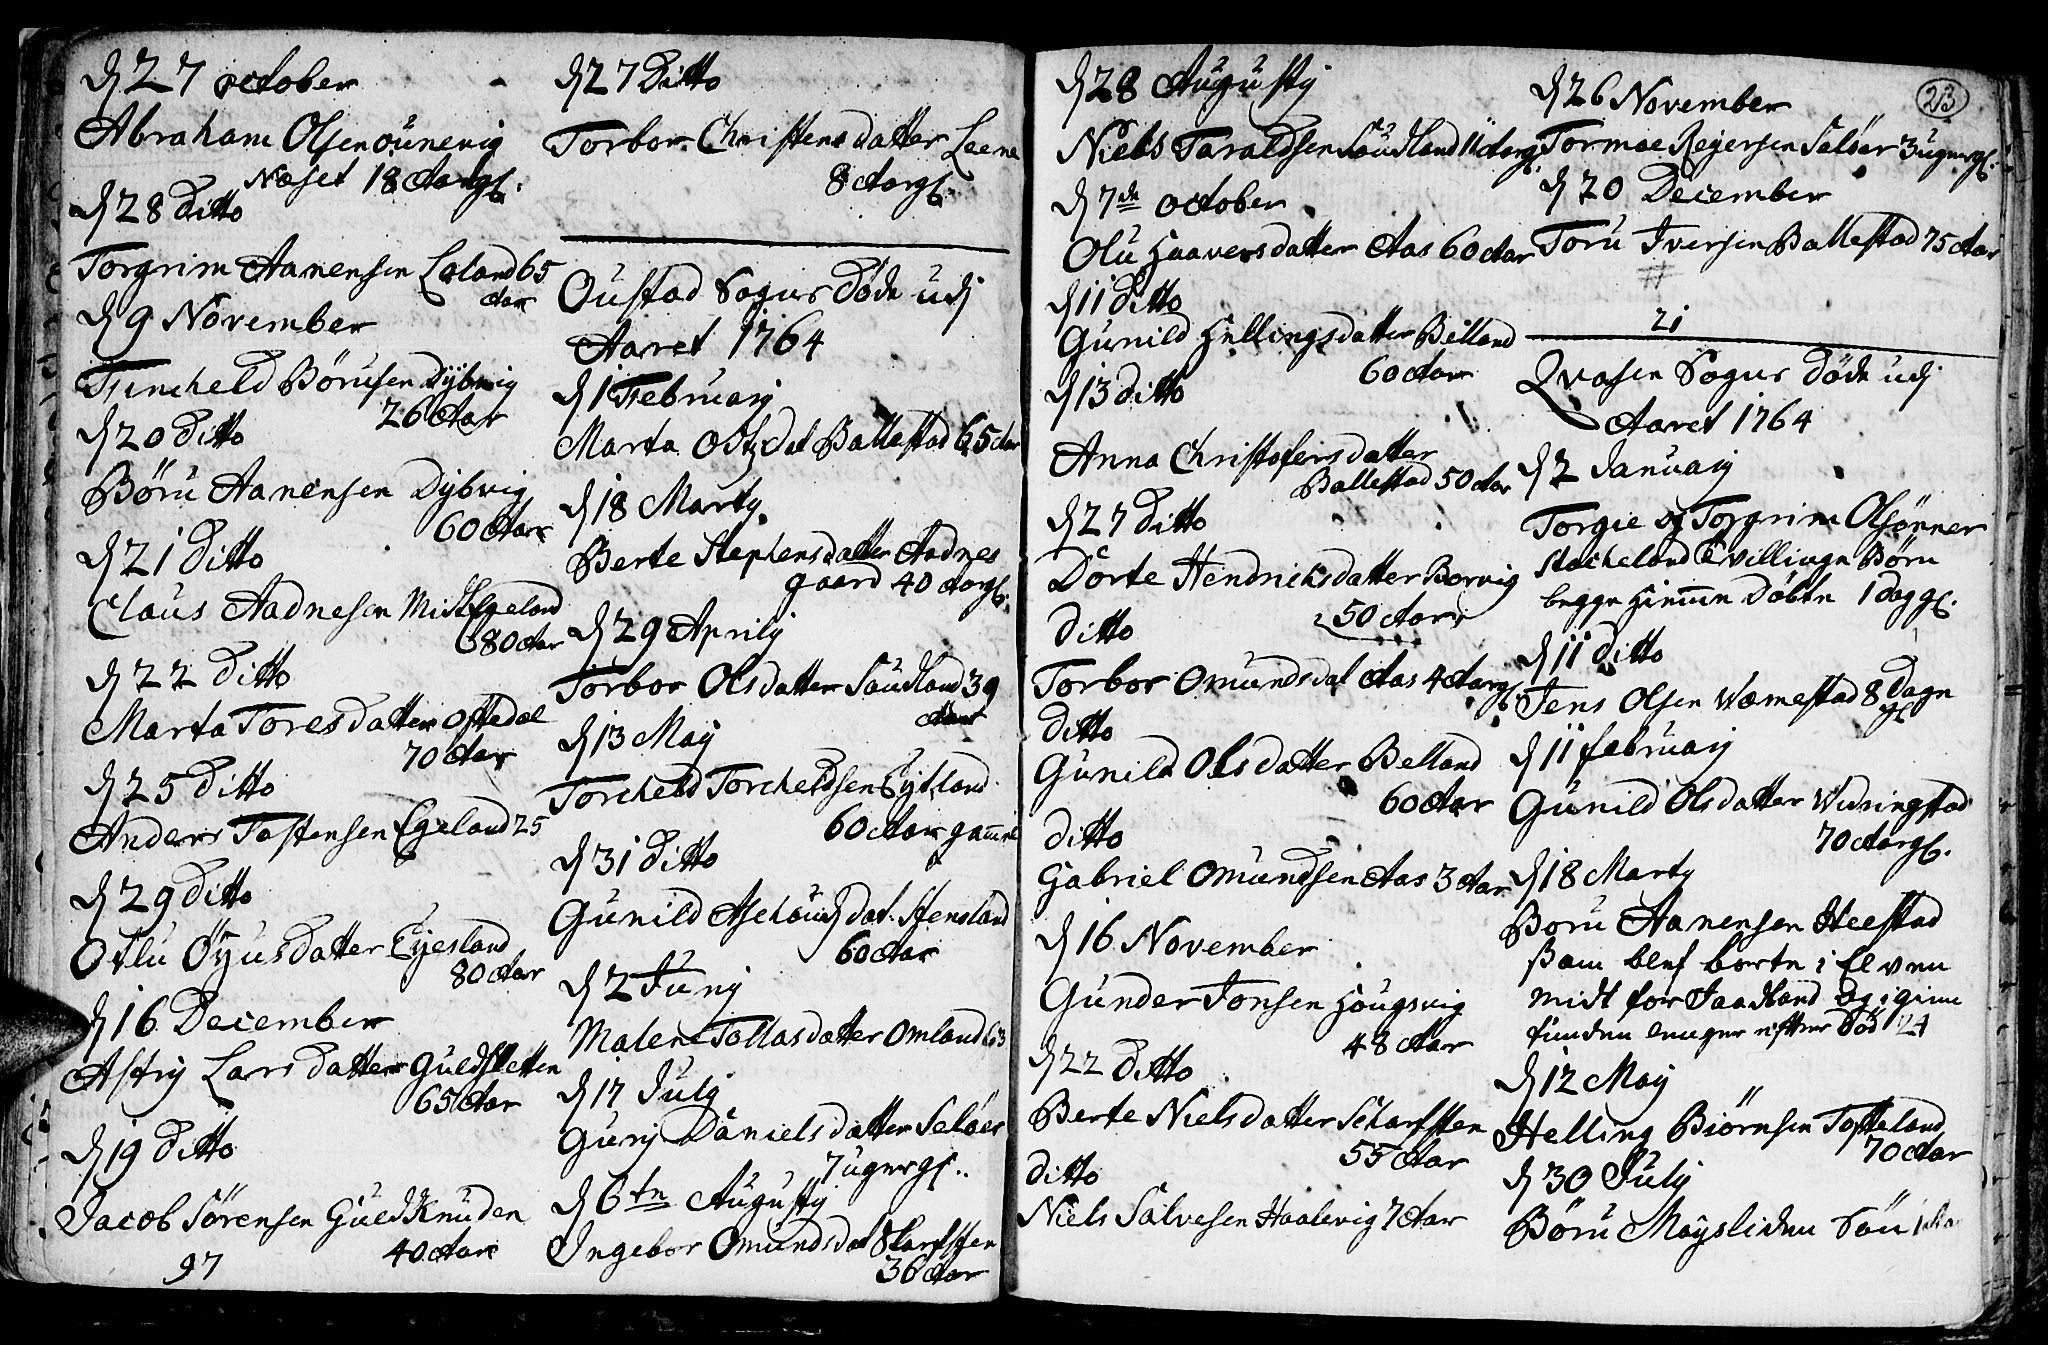 d 27 october
Abraham Olsen ounevig
Næset 18 Aar gl.
d 28 Ditto
Torgrim Aanensen Leland 65
Aar
d 9 November
Tencheld Börusen Dybvig
26 Aar
d 20 Ditto
Böru Aanensen Dybvig
60 Aar
d 21 Ditto
Claus Aadnesen Midt Egeland
80 Aar
d 22 Ditto
Marta Toresdatter oftedal
70 Aar
d 25 Ditto
Anders Tostensen Egeland 25
d 29 Ditto
Otlu Öyusdatter Eyesland
80 Aar
d 16 December
Astry Larsdatter Guldsletten
65 Aar
d 19 Ditto
Jacob Sörensen Guldknuden
40 Aar
97
d 27 Ditto
Torbor Christensdatter Leene
8 Aar gl.
Oustad Sogns Döde udj
Aaret 1764
d 1 February
Marta dat Ballestad 65 Aar
d 18 Marty
Berte Stephensdatter Aadnes
gaard 40 Aar gl.
d 29 Aprily
Torbor Olsdatter Saudland 39
Aar
d 13 May
Torcheld Torcheldsen Eytland
60 Aar gamel
d 31 Ditto
Gunild dat. Stensland
60 Aar
d 2 Juny
Malene Tollasdatter Omland 63
d 17 July
Gury Danielsdatter Selöer
7 uger gl.
d 6te Augusty
Ingebor Omundsdat Skarfsten
36 Aar
23
d 28 Augusty
Niels Taraldsen Saudland 11 Aar gl.
d 7de october
Olu Haaversdatter Aas 60 Aar
d 11 Ditto
Gunild Hellingsdatter Billand
60 Aar
d 13 ditto
Anna Christofersdatter
Ballestad 50 Aar
d 27 Ditto
Dorte Hendrichsdatter Borvig
50 Aar
ditto
Torbor Omundsdat Aas 4 Aar gl.
ditto
Gunild Olsdatter Belland
60 Aar
ditto
Gabriel Omundsen Aas 3 Aar
d 16 November
Gunder Jonsen Hougsvig
48 Aar
d 22 ditto
Berte Nielsdatter Scharfsten
55 Aar
ditto
Niels Salvesen Haalevig 7 Aar
d 26 November
Tormoe Reyersen Salöer 3 uger gl.
d 20 December
Toru Iversen Ballestad 75 Aar
21
Qvasen Sogns Döde udj
Aaret 1764
d 2 January
Torgie og Torgrim Olsönner
Stocheland Tvillinge Börn
begge Hiemme Döbte 1 Dag gl.
d 11 ditto
Jens Olsen Wæmestad 8 Dage
gl
d 11 february
Gunild Olsdatter Widringstad
70 Aar gl.
d 18 Marty
Boru Aanensen Heestad
Som blef borte i Elven
midt for Jaadland og igien
funden 6 uger efter död 24
d 12 May
Helling Biörnsen Tofteland
70 Aar
d 30 July
Böru Möyslidens Sön 1 Aar